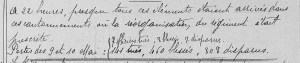 A 22 heures, presque tous ces éléments étaient arrivés dans
ces cantonnements où la réorganisation du régiment était
prescrite.
Pertes des 9 et 10 mai : tués, 450 blessés, 808 disparus.